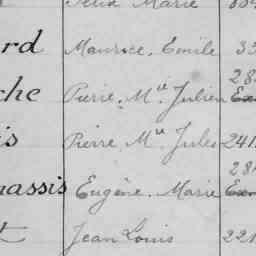 Félix Marie
rd Maurice, Emile 33
28
che Pierre, M.ie Julien Exe
is Pierre, M.ie Jules 241
281
hassis Eugène, Marie Exe
t Jean Louis 221